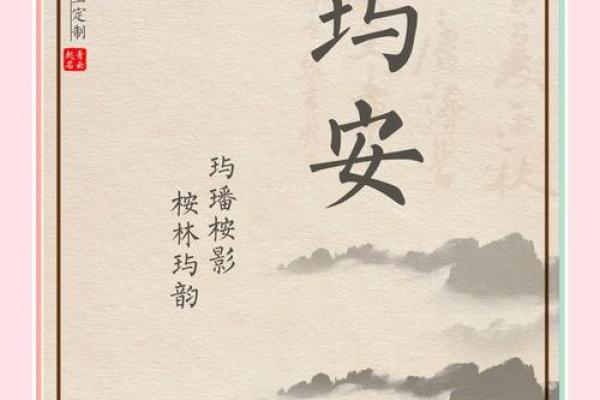 玙安
玙璠桉影
桉林玙韵
定制
青云
起名